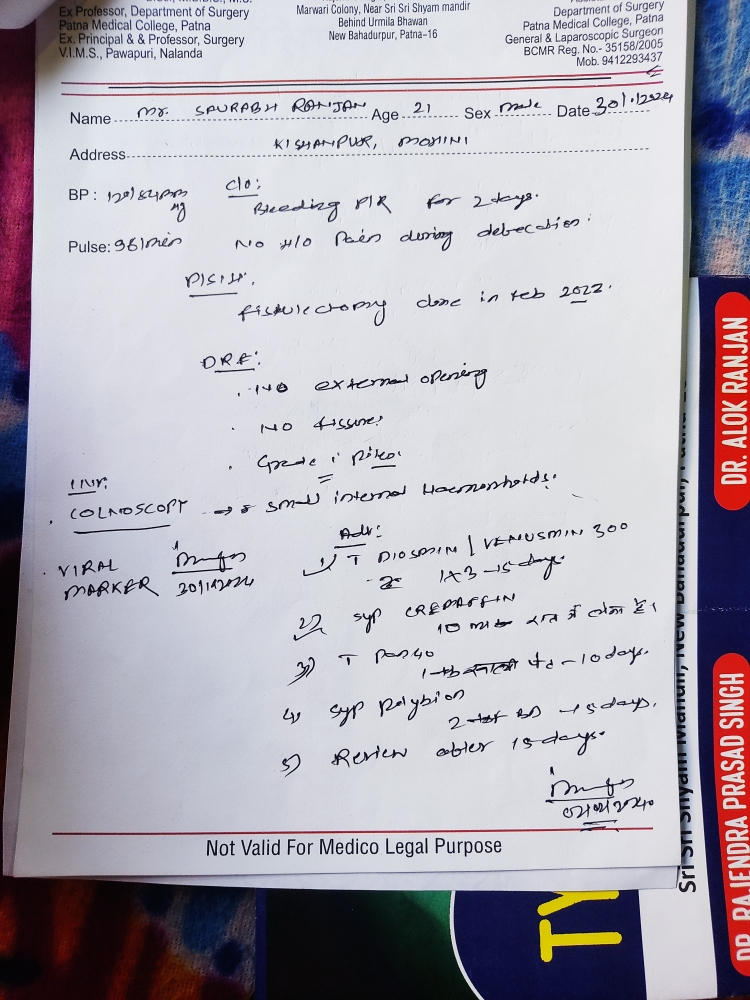 Ex Professor, Department of Surgery
Patna Medical College, Patna
Ex. Principal & & Professor, Surgery
V.I.M.S., Pawapuri, Nalanda
Marwari Colony, Near Sri Sri Shyam mandir
Behind Urmila Bhawan
New Bahadurpur, Patna-16
Department of Surgery
Patna Medical College, Patna
General & Laparoscopic Surgeon
BCMR Reg. No.- 35158/2005
Mob. 9412293437
Name Mr. SAURABH RANJAN Age 21 Sex male Date
Address KISHANPUR, MOHINI
BP: 120/84mm Hg
Pulse: 96/min
C/O:
Bleeding P/R for 2 days.
No H/O Pain during defecation.
P/S/H.
fistulectomy done in Feb 2022.
DRE:
. NO external opening
. NO fissure
. Grade 1 Piles.
INV:
. COLNOSCOPY → small internal Haemorrhoids.
. VIRAL MARKER
Adv:
1) T DIOSMIN / VENUSMIN 300
1x3 - 15 days.
2) Syp CREMAFFIN
10 ml रात में लेना है।
3) T Pan 40
- 10 days.
4) Syp Polybion
2 BD - 15 days.
5) Review after 15 days.
Not Valid For Medico Legal Purpose
DR. ALOK RANJAN
DR. RAJENDRA PRASAD SINGH
Sri Sri Shyam Mandir, New Bahadurpur,
TY